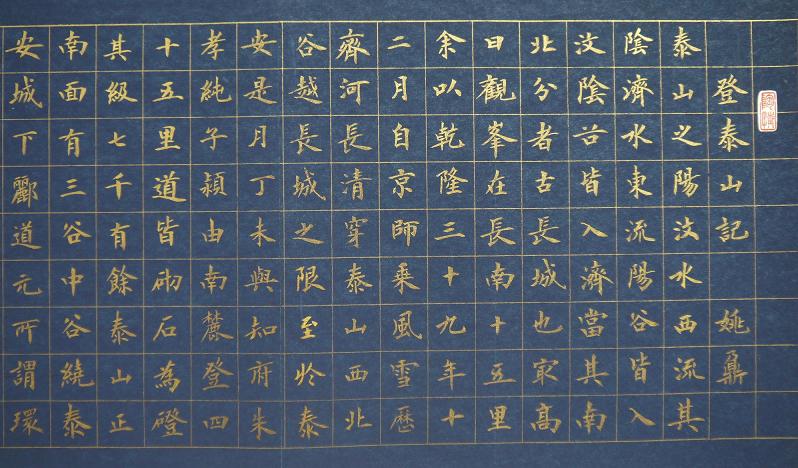 登泰山記 姚鼐
泰山之陽汶水西流其
陰濟水東流陽谷皆入
汶陰谷皆入濟當其南
北分者古長城也冣高
日觀峯在長南十五里
余以乾隆三十九年十
二月自京師乘風雪歷
齊河長清穿泰山西北
谷越長城之限至於泰
安是月丁未與知府朱
孝純子潁由南麓登四
十五里道皆砌石為磴
其級七千有餘泰山正
南面有三谷中谷繞泰
安城下酈道元所謂環